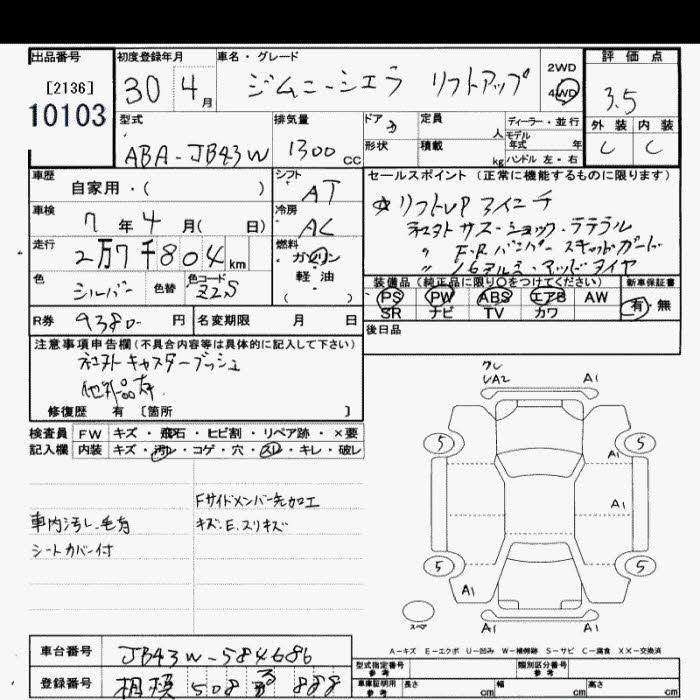 出品番号
[2136]
10103
初度登録年月
30 4月
車名・グレード
ジムニーシエラ リフトアップ
2WD
4WD
評価点
3.5
外装 内装
C C
型式
ABA-JB43W
排気量
1300 cc
ドア 3
形状
定員 人
積載 kg
ディーラー・並行
モデル年式 年
ハンドル 左・右
車歴
自家用・( )
車検
7年4月( 日)
走行
2万7千804 km
色
シルバー
色替
色コード
Z2S
シフト
AT
冷房
AC
燃料
ガソリン
軽・油
( )
セールスポイント (正常に機能するものに限ります)
☆リフトUP 3インチ
社外サス・ショック・ラテラル
〃 F.R バンパー スキッドガード
〃 16アルミ・マッドタイヤ
装備品(純正品に限り○をつけてください)
PS PW ABS エアB AW
SR ナビ TV カワ
新車保証書
有・無
R券 9380- 円
名変期限 月 日
後日品
注意事項申告欄(不具合内容等は具体的に記入して下さい)
社外キャスターブッシュ
他外品有
修復歴 有 [箇所 ]
検査員 FW キズ・飛石・ヒビ割・リペア跡・×要
記入欄 内装 キズ・汚レ・コゲ・穴・スレ・キレ・破レ
Fサイドメンバー先加工
車内汚レ.毛有
キズ.E.スリキズ
シートカバー付
クレ
UA2
A1
5 5
A1
A1
5 5
A1
A1 A1
スペア
A-キズ E-エクボ U-凹み W-補修跡 S-サビ C-腐食 XX-交換済
車台番号 JB43W-584686
登録番号 相模 508 る 888
型式指定番号 参考
類別区分番号 参考
車庫証明用 参考 長さ cm 幅 cm 高さ cm